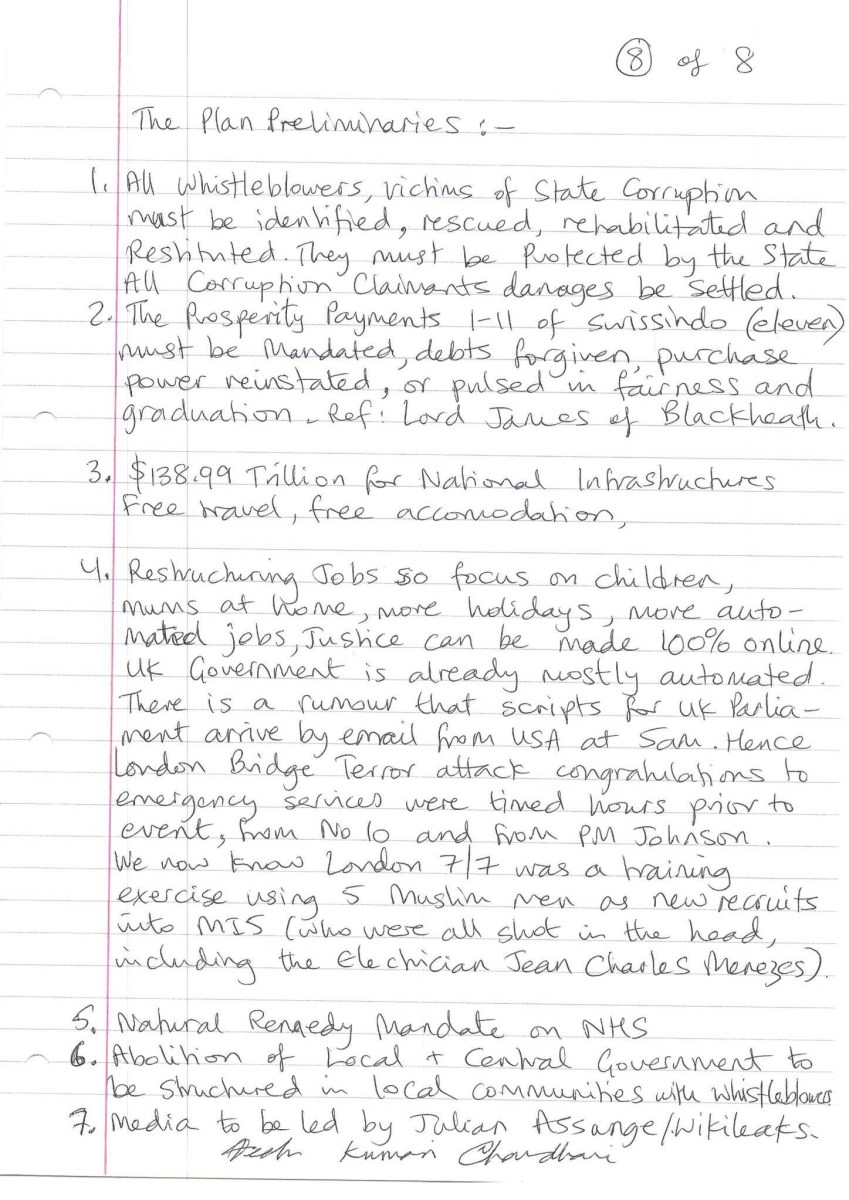 ⑧ of 8
The Plan Preliminaries :-
1. All Whistleblowers, victims of State Corruption
must be identified, rescued, rehabilitated and
Restituted. They must be Protected by the State
All Corruption Claimants damages be settled.
2. The Prosperity Payments 1-11 of Swissindo (eleven)
must be Mandated, debts forgiven, purchase
power reinstated, or pulsed in fairness and
graduation. Ref: Lord James of Blackheath.
3. $138.99 Trillion for National Infrastructures
Free travel, free accomodation,
4. Restructuring Jobs so focus on children,
mums at home, more holidays, more auto-
mated jobs, Justice can be made 100% online.
UK Government is already mostly automated.
There is a rumour that scripts for UK Parlia-
ment arrive by email from USA at 5am. Hence
London Bridge Terror attack congratulations to
emergency services were timed hours prior to
event, from No 10 and from PM Johnson.
We now know London 7/7 was a training
exercise using 5 Muslim men as new recruits
into MI5 (who were all shot in the head,
including the Electrician Jean Charles Menezes).
5. Natural Remedy Mandate on NHS
6. Abolition of Local + Central Government to
be structured in local communities with whistleblowers
7. Media to be led by Julian Assange/Wikileaks.
Kumari Chaudhari